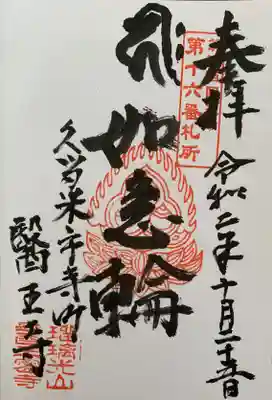 奉拝
第十六番札所
令和二年十月二十五日
如意輪
久留米市寺町
醫王寺
瑠璃光山